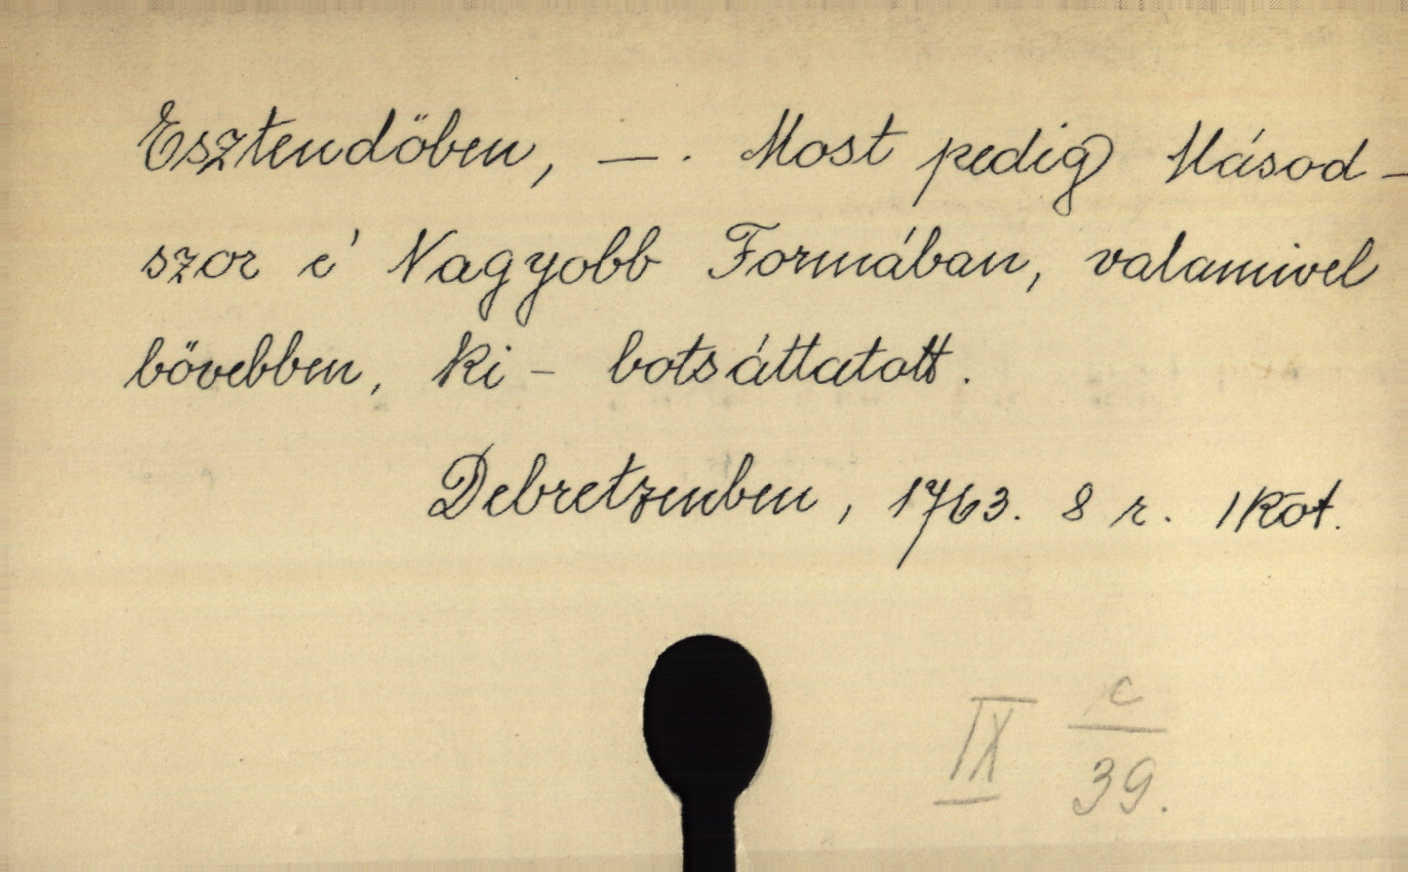 Esztendőben, —. Most pedig Másod-
szor é Nagyobb Formában, valamivel
bővebben, ki- botsáttatott.
Debretzenben, 1763. 8 r. 1 Köt.
IX c
39.